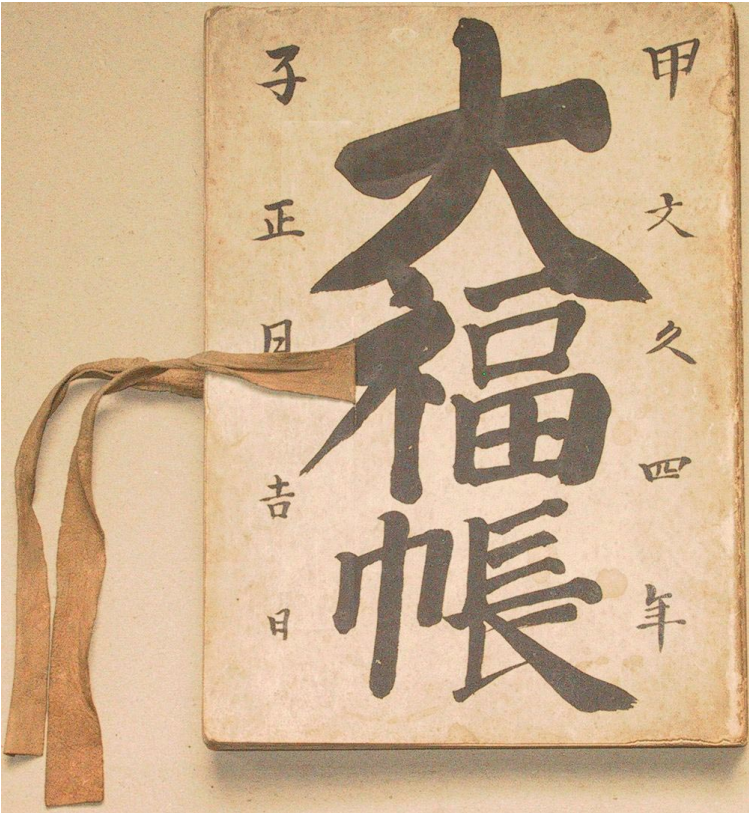 甲文久四年
大福帳
子正月吉日